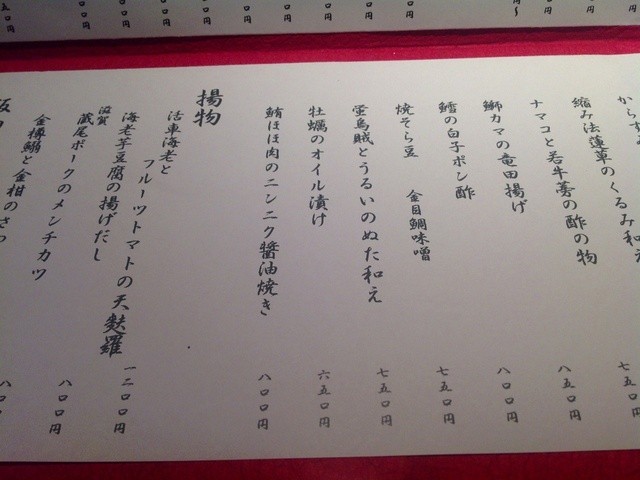 縮み法蓮草のくるみ和え
ナマコと若牛蒡の酢の物
七五〇円
鰤カマの竜田揚げ
八五〇円
鱈の白子ポン酢
八〇〇円
焼そら豆 金目鯛味噌
七五〇円
蛍烏賊とうるいのぬた和え
七五〇円
牡蠣のオイル漬け
六五〇円
鮪ほほ肉のニンニク醬油焼き
八〇〇円
揚物
活車海老と
フルーツトマトの天麩羅
一二〇〇円
海老芋豆腐の揚げだし
八〇〇円
滋賀
蔵尾ポークのメンチカツ
金樽鰯と金柑のさつ